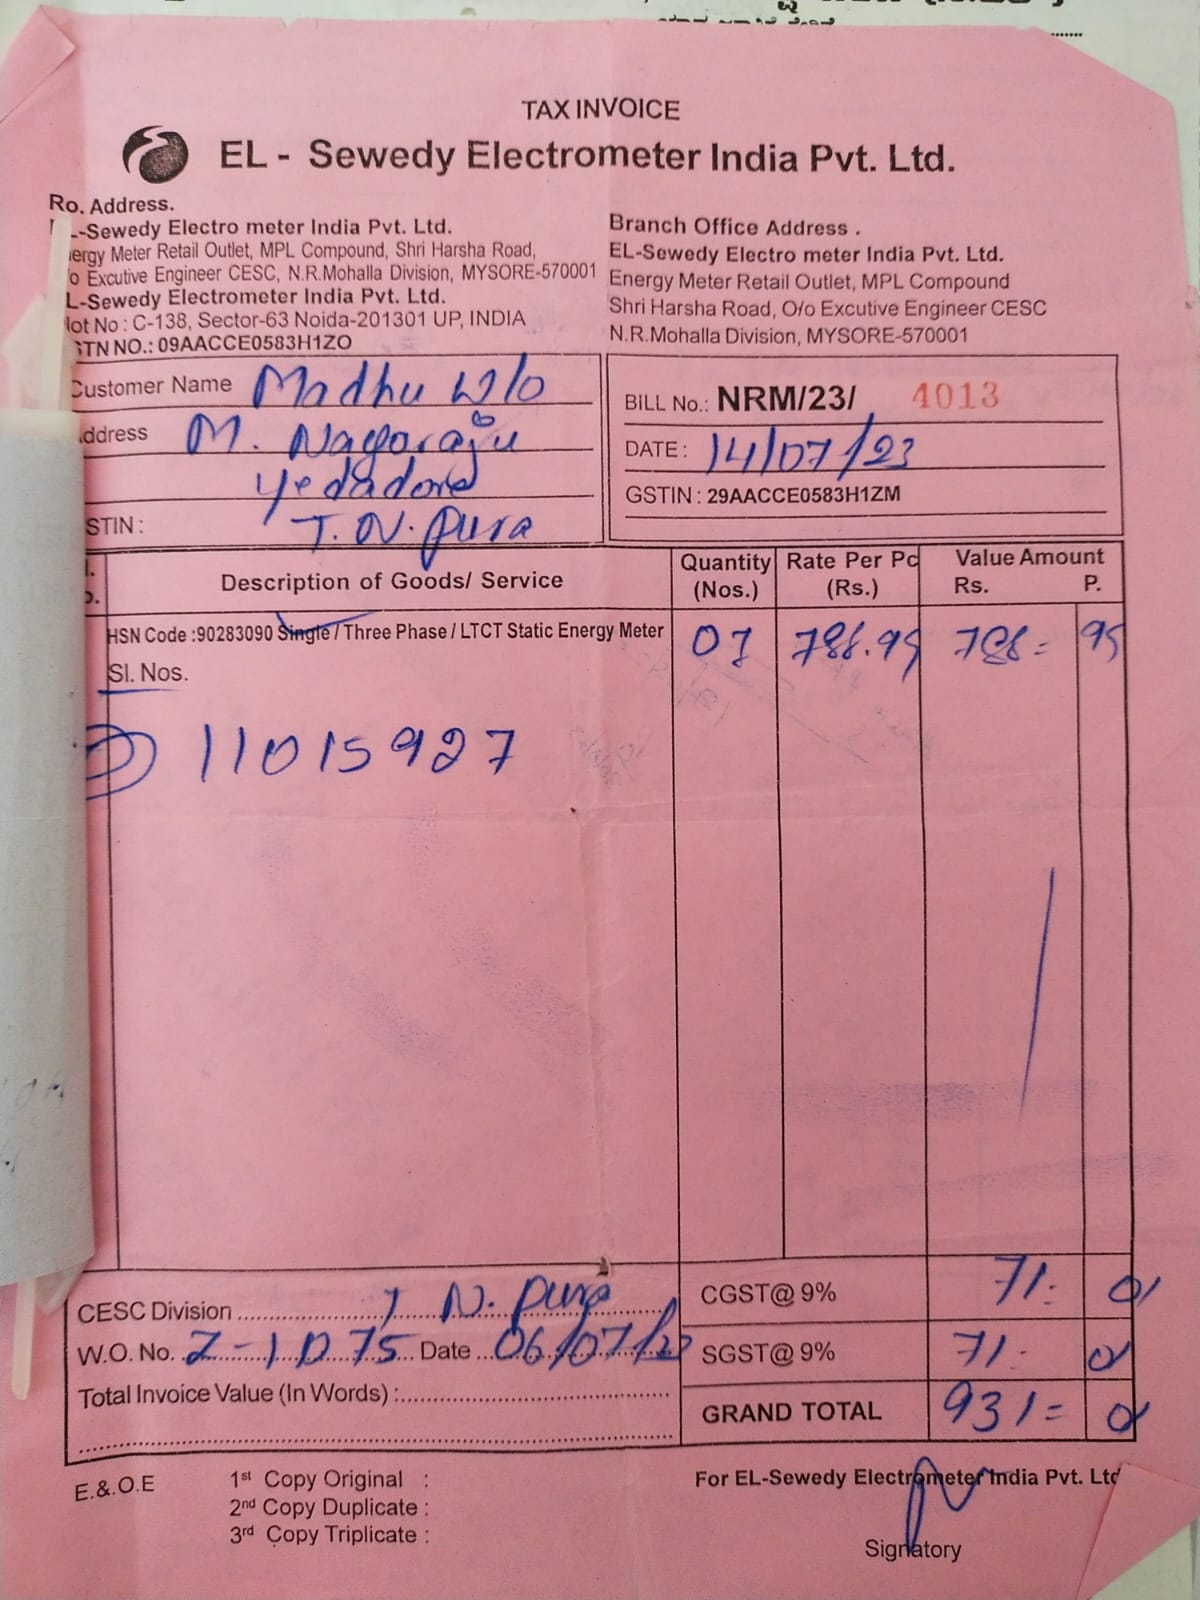 TAX INVOICE
EL - Sewedy Electrometer India Pvt. Ltd.
Ro. Address.
L-Sewedy Electro meter India Pvt. Ltd.
ergy Meter Retail Outlet, MPL Compound, Shri Harsha Road,
/o Excutive Engineer CESC, N.R.Mohalla Division, MYSORE-570001
L-Sewedy Electrometer India Pvt. Ltd.
lot No : C-138, Sector-63 Noida-201301 UP, INDIA
STN NO.: 09AACCE0583H1ZO
Branch Office Address .
EL-Sewedy Electro meter India Pvt. Ltd.
Energy Meter Retail Outlet, MPL Compound
Shri Harsha Road, O/o Excutive Engineer CESC
N.R.Mohalla Division, MYSORE-570001
Customer Name Madhu W/o
ddress M. Nagaraju
Yedadore
STIN : T. N. pura
BILL No.: NRM/23/ 4013
DATE : 14/07/23
GSTIN : 29AACCE0583H1ZM
Description of Goods/ Service Quantity (Nos.) Rate Per Pc (Rs.) Value Amount Rs. P.
HSN Code :90283090 Single / Three Phase / LTCT Static Energy Meter 01 788.99 788= 99
Sl. Nos.
11015927
CESC Division T N. pura
W.O. No. Date 06/07/23
Total Invoice Value (In Words) :
CGST@ 9% 71= 01
SGST@ 9% 71= 01
GRAND TOTAL 931= 01
E.&.O.E
1st Copy Original :
2nd Copy Duplicate :
3rd Copy Triplicate :
For EL-Sewedy Electrometer India Pvt. Ltd
Signatory